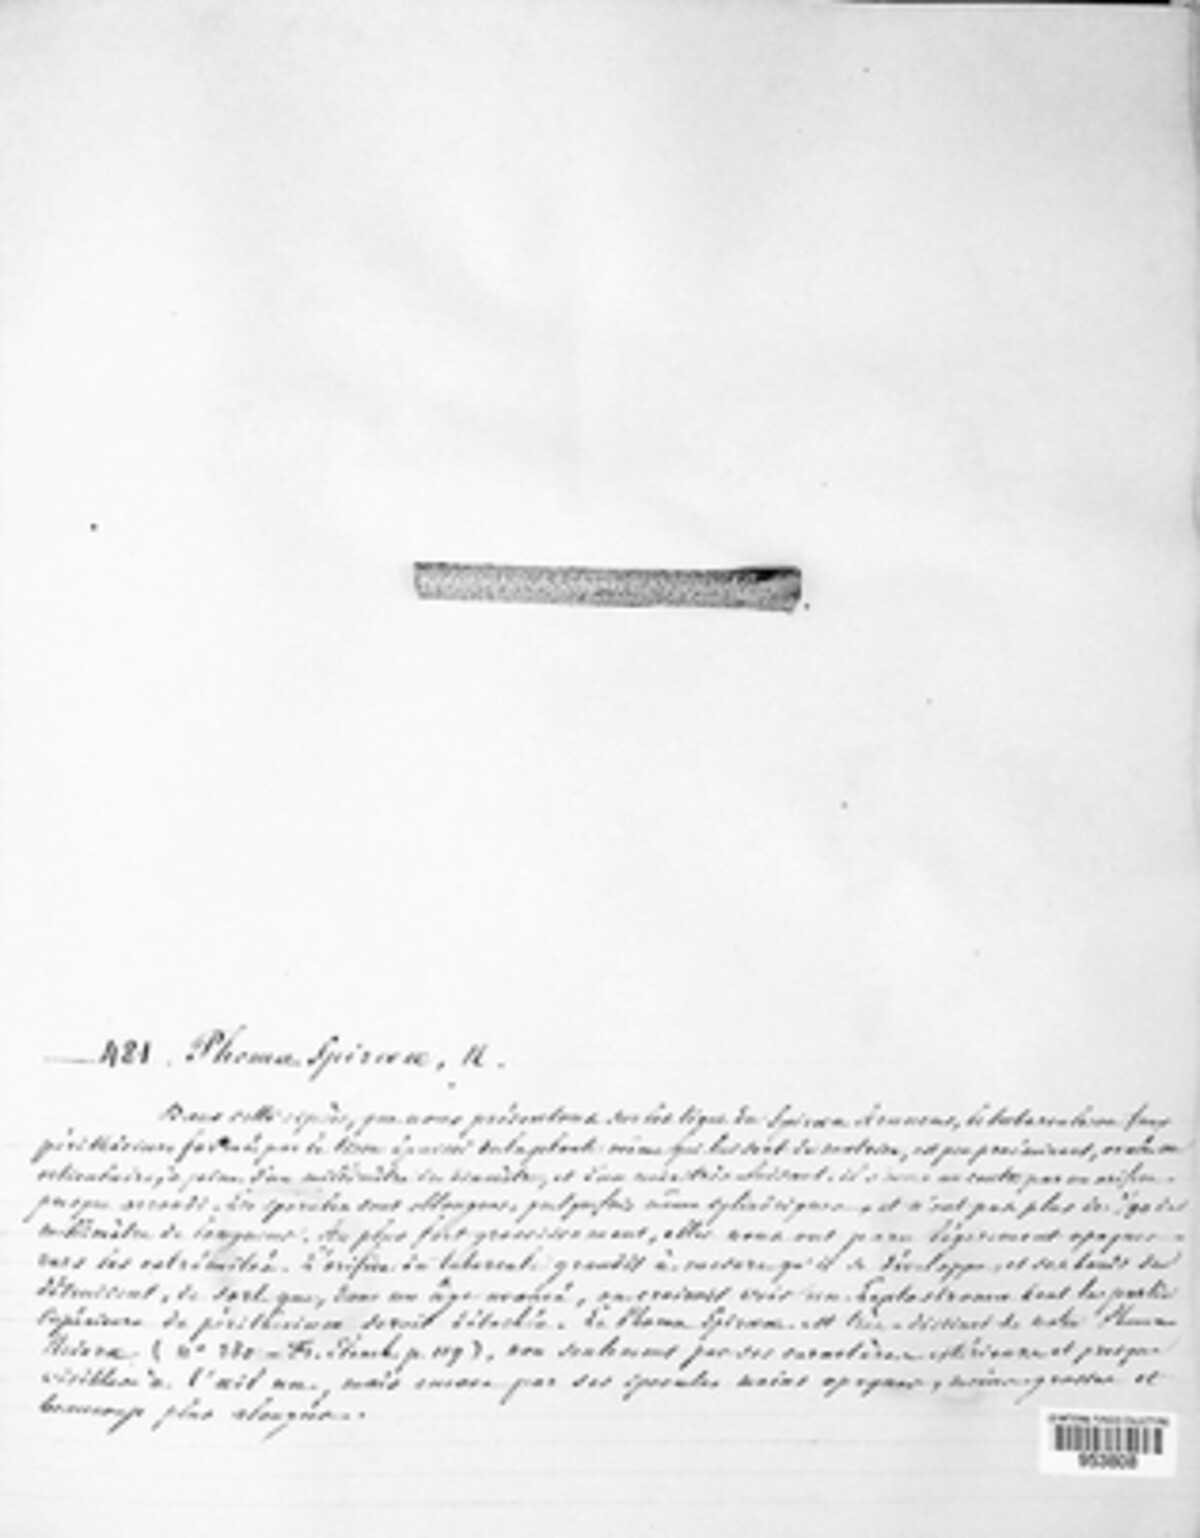 421. Phoma Spiraeae, N.
Dans cette espèce, que nous présentons sur les tiges du Spiraea Aruncus, le tubercule ou faux
périthécium formé par le tissu épaissi de la plante même qui lui sert de matrice, est peu proéminent, ovale ou
orbiculaire, à peine d'un millimètre de diamètre, et d'un noir très luisant. il s'ouvre au centre par un orifice
presque arrondi. Les sporules sont oblongues, quelquefois même cylindriques, et n'ont pas plus de
millimètre de longueur. Au plus fort grossissement, elles nous ont paru légèrement opaques
vers les extrémités. L'orifice du tubercule grandit à mesure qu'il se développe, et ses bords se
détruisent, de sorte que, dans un âge avancé, on croirait voir un Leptostroma dont la partie
supérieure du périthécium serait détachée. Le Phoma Spiraeae est très-distinct de notre Phoma
(n° 280 - Fr. Elench. p. 119), non seulement par ses caractères extérieurs et presque
visibles à l'œil nu, mais encore par ses sporules moins opaques, moins grosses et
beaucoup plus alongées.
953808